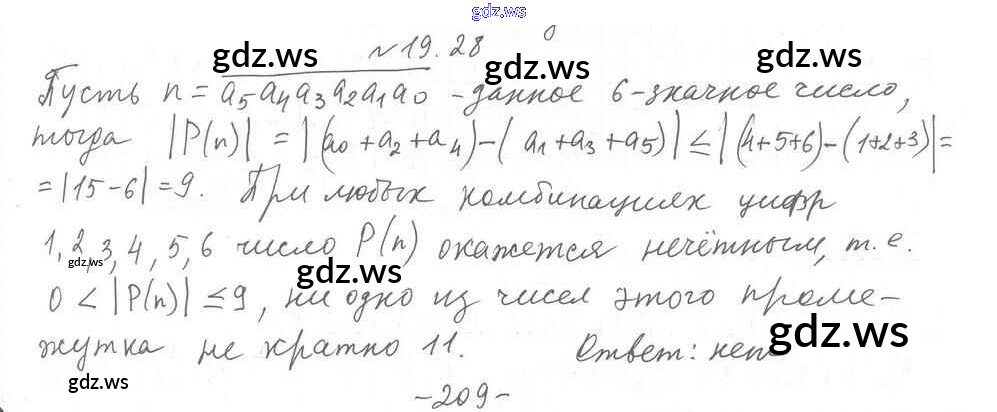 gdz.ws
№19.28
Пусть n = a5a4a3a2a1a0 - данное 6-значное число,
тогда |P(n)| = |(a0+a2+a4)-(a1+a3+a5)| ≤ |(4+5+6)-(1+2+3)| =
= |15-6| = 9. При любых комбинациях цифр
1, 2, 3, 4, 5, 6 число P(n) окажется нечётным, т.е.
0 < |P(n)| ≤ 9, ни одно из чисел этого проме-
жутка не кратно 11. Ответ: нет
-209-
gdz.ws
gdz.ws
gdz.ws
gdz.ws
gdz.ws
gdz.ws
gdz.ws